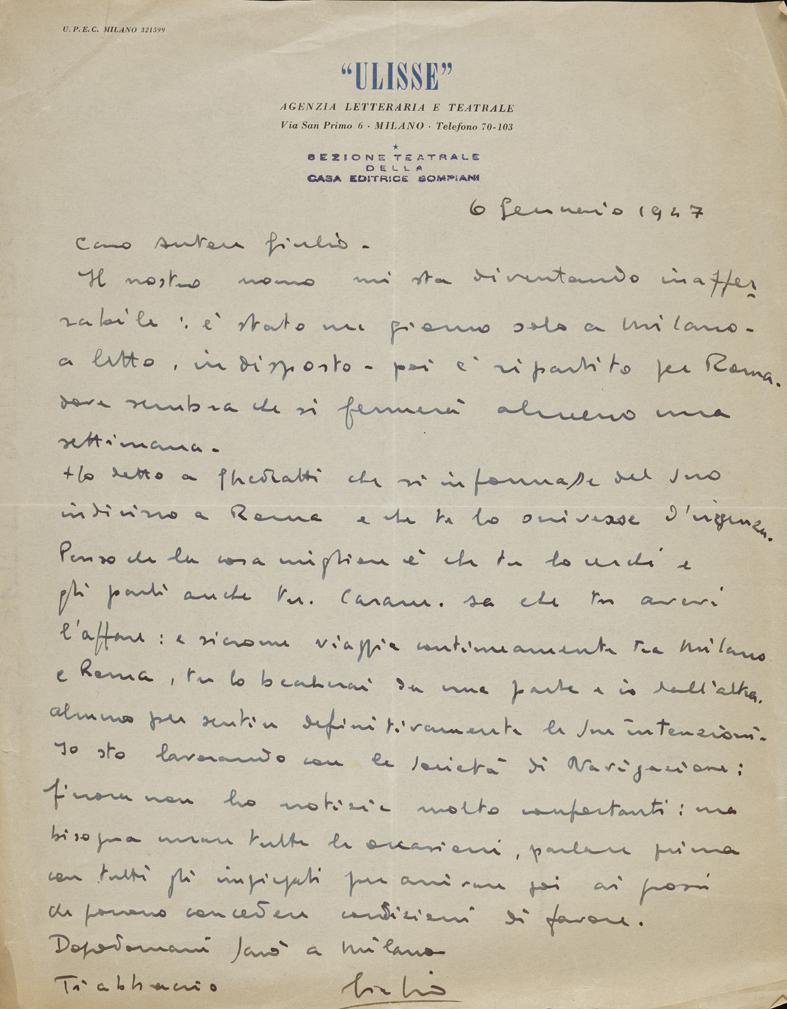 U.P.E.C. MILANO 321599
“ULISSE”
AGENZIA LETTERARIA E TEATRALE
Via San Primo 6 · MILANO · Telefono 70-103
SEZIONE TEATRALE
DELLA
CASA EDITRICE BOMPIANI
6 gennaio 1947
Caro Giulio -
Il nostro uomo mi sta diventando inaffer
rabile : è stato un giorno solo a Milano -
a letto, indisposto - poi è ripartito per Roma.
dove sembra che si fermerà almeno una
settimana -
Ho detto a che si informasse del suo
indirizzo a Roma e che te lo scrivesse d'urgenza.
Penso che la cosa migliore è che tu lo veda e
gli parli anche tu. sa che tu
l'affare : e siccome viaggia continuamente tra Milano
e Roma, tu lo beccherai da una parte e io dall'altra.
almeno per sentire definitivamente le sue intenzioni -
Io sto lavorando con le Società di Navigazione :
finora non ho notizie molto confortanti : ma
bisogna usare tutte le occasioni, parlare prima
con tutti gli impiegati per arrivare poi ai grossi
che possono concedere condizioni di favore.
Dopodomani sarò a Milano
Ti abbraccio Giulio